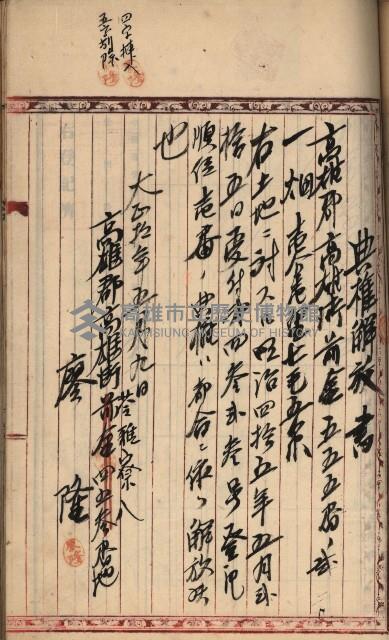 四字挿入
五字削除
典權解放書
高雄郡高雄街前金五五五番ノ弐
一、畑 壱分七毛五糸
右土地ニ対スル明治四拾五年五月弐
拾五日受付第四参弐参号登記
順位壱番ノ典權ハ都合ニ依リ解放候
也
大正拾年五月九日
高雄郡高雄街前金四五参番地
苓雅寮八
廖 隆
高雄市立歷史博物館
KAOHSIUNG MUSEUM OF HISTORY